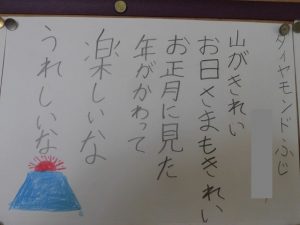 ダイヤモンドふじ
山がきれい
お日さまもきれい
お正月に見た
年がかわって
楽しいな
うれしいな